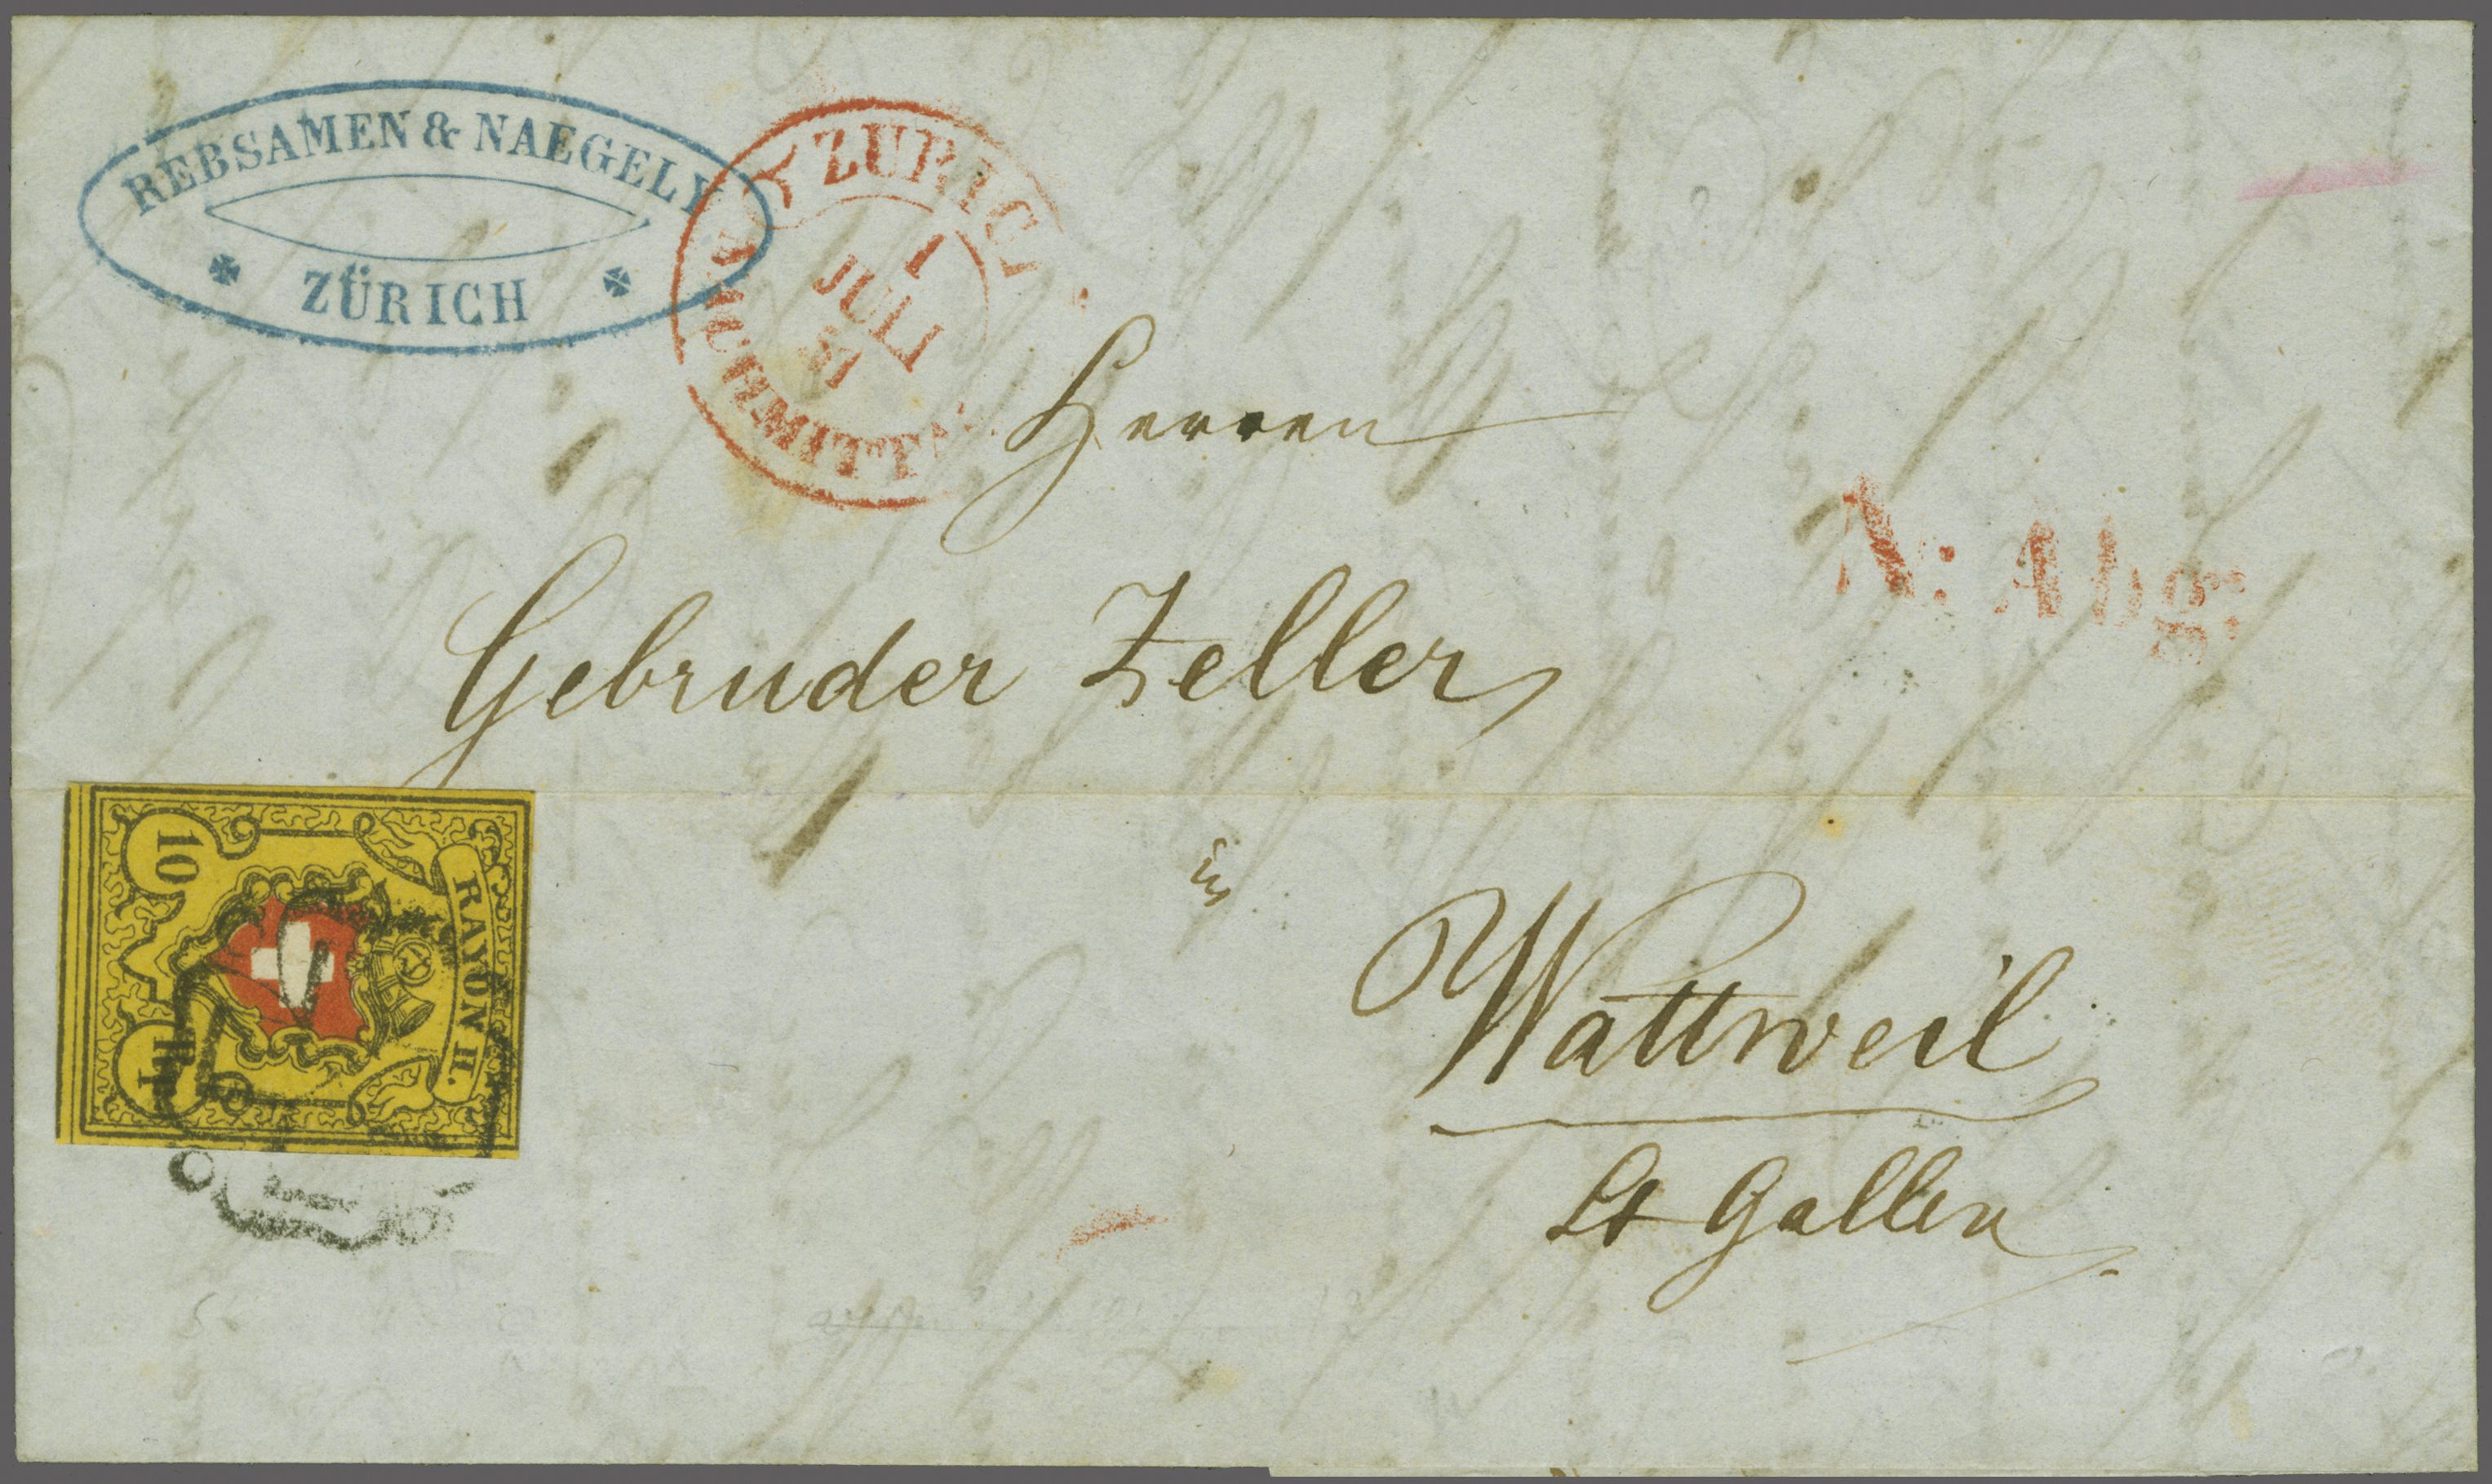 REBSAMEN & NAEGELY
ZÜRICH
ZÜRICH
1
JULI
51
NACHMITTAG
Herren
N: Abg:
Gebruder Zeller
10
RAYON II.
in
Wattweil
St Gallen